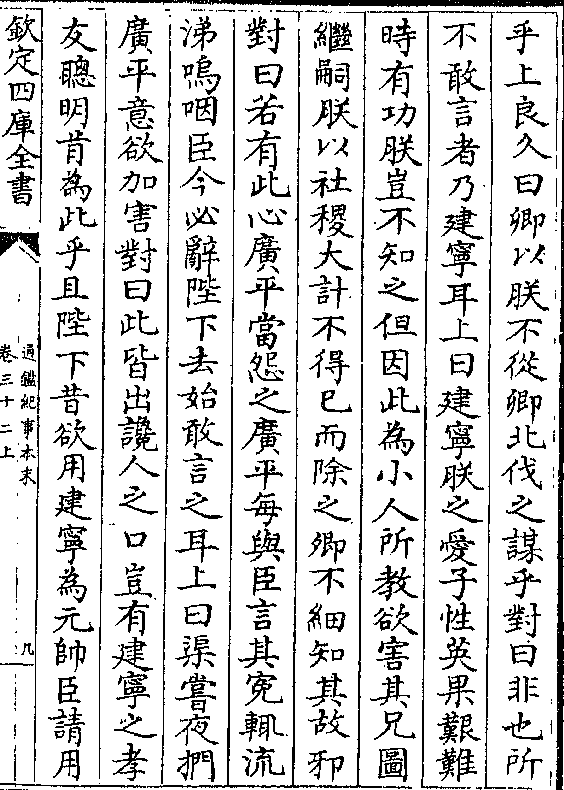 乎上良久曰卿以朕不從卿北伐之謀乎對曰非也所
不敢言者乃建寧耳上曰建寧朕之愛子性英果艱難
時有功朕豈不知之但因此為小人所教欲害其兄圖
繼嗣朕以社稷大計不得已而除之卿不細知其故邪
對曰若有此心廣平當怨之廣平每與臣言其寃輒流
涕嗚咽臣今必辭陛下去始敢言之耳上曰渠嘗夜捫
廣平意欲加害對曰此皆出讒人之口豈有建寧之孝
友聰明肯為此乎且陛下昔欲用建寧為元帥臣請用
欽定四庫全書
通鑑紀事本末
卷三十二上
九